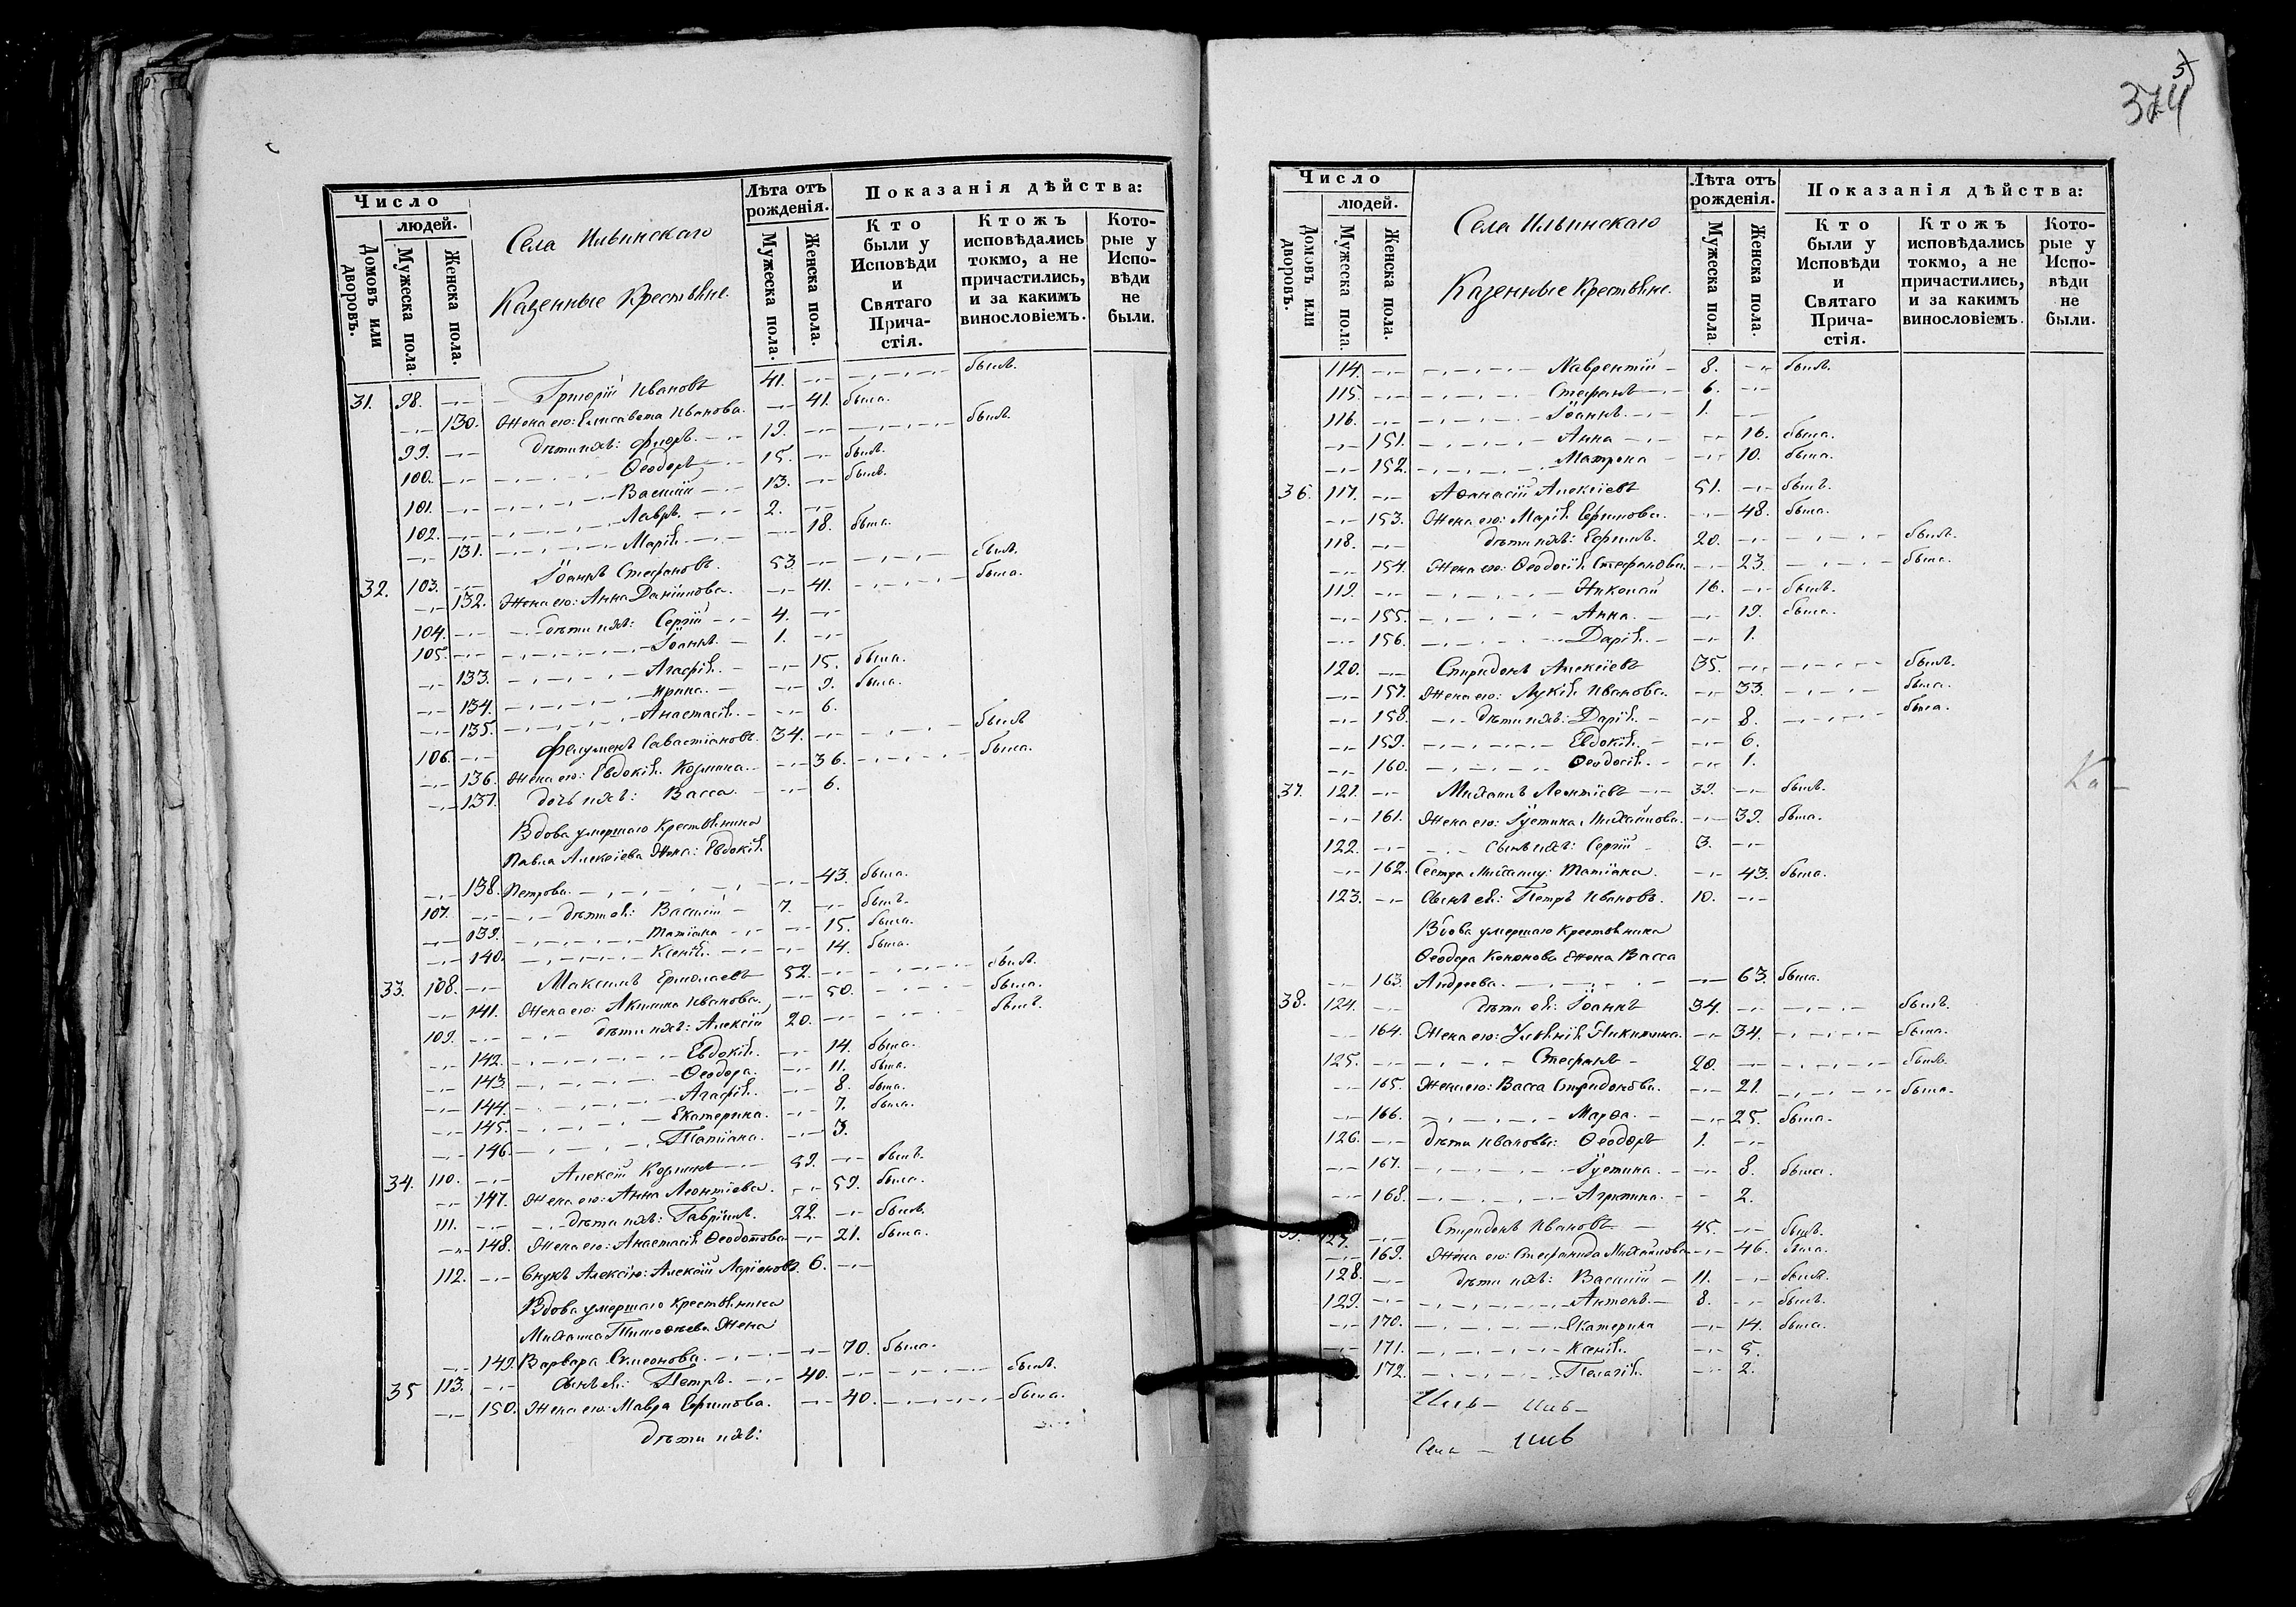 5)
374
Число
людей.
Домовъ или дворовъ.
Мужеска пола.
Женска пола.
Села Ильинскаго
Казенные Крестьяне.
Лѣта отъ рожденія.
Мужеска пола.
Женска пола.
Показанія дѣйства:
Кто были у Исповѣди и Святаго Прича-стія.
Ктожъ исповѣдались токмо, а не причастились, и за какимъ винословіемъ.
Кото-рые у Испо-вѣди не были.
31. 98. Григорій Ивановъ 41. былъ.
130. Жена его: Елисавета Иванова. 41. была.
99. дѣти ихъ: Флоръ. 19. былъ.
100. Ѳеодоръ 15. былъ.
101. Василій 13. былъ.
102. Лавръ. 2.
131. Марія. 18. была.
32. 103. Іоаннъ Стефановъ. 53. былъ.
132. Жена его: Анна Даніилова. 41. была.
104. дѣти ихъ: Сергій 4.
105. Іоаннъ. 1.
133. Агафія. 15. была.
134. Ирина. 9. была.
135. Анастасія. 6.
106. Филумонъ Савастіановъ. 34. былъ
136. Жена его: Евдокія Козмина. 36. была.
137. дочь ихъ: Васса. 6.
Вдова умершаго Крестьянина
Павла Алексіева Жена: Евдокія
138. Петрова. 43. была.
107. дѣти ея: Василій 7. былъ.
039. Татіана 15. была.
140. Ксенія. 14. была.
33. 108. Максимъ Ермолаевъ 52. былъ.
141. Жена его: Акилина Иванова. 50. была.
109. дѣти ихъ: Алексій 20. былъ.
142. Евдокія. 14. была.
143. Ѳеодора. 11. была.
144. Агафія. 8. была.
145. Екатерина. 7. была.
146. Татіана. 3.
34. 110. Алексій Козминъ 59. былъ.
147. Жена его: Анна Леонтіева. 59. была.
111. дѣти ихъ: Гавріилъ. 22. былъ.
148. Жена его: Анастасія Ѳеодотова 21. была.
112. Внукъ Алексію: Алексій Ларіоновъ. 6.
Вдова умершаго Крестьянина
Михаила Тимоѳеева Жена
149. Варвара Симеонова. 70. была.
35 113. Сынъ ея: Петръ. 40. былъ.
150. Жена его: Мавра Ефимова. 40. была.
дѣти ихъ:
Число
людей.
Домовъ или дворовъ.
Мужеска пола.
Женска пола.
Села Ильинскаго
Казенные Крестьяне.
Лѣта отъ рожденія.
Мужеска пола.
Женска пола.
Показанія дѣйства:
Кто были у Исповѣди и Святаго Прича-стія.
Ктожъ исповѣдались токмо, а не причастились, и за какимъ винословіемъ.
Кото-рые у Испо-вѣди не были.
114. Лаврентій 8. былъ.
115. Стефанъ 6.
116. Іоаннъ. 1.
151. Анна 16. была.
152. Матрона 10. была.
36. 117. Аѳанасій Алексіевъ 51. былъ.
153. Жена его: Марія Ефимова. 48. была.
118. дѣти ихъ: Ефимъ. 20. былъ.
154. Жена его: Ѳеодосія Стефанова. 23. была.
119. Николай 16. былъ.
155. Анна. 19. была.
156. Дарія. 1.
120. Спиридонъ Алексіевъ 35. былъ.
157. Жена его: Лукія Иванова. 33. была.
158. дѣти ихъ: Дарія. 8. была.
159. Евдокія. 6.
160. Ѳеодосія. 1.
37. 121. Михаилъ Леонтіевъ 39. былъ.
161. Жена его: Іустина Михайлова. 39. была.
122. Сынъ ихъ: Сергій 3.
162. Сестра Михаилу: Татіана. 43. была.
123. Сынъ ея: Петръ Ивановъ. 10.
Вдова умершаго Крестьянина
Ѳеодора Кононова Жена Васса
163. Андреева. 63. была.
38. 124. Дѣти ея: Іоаннъ 34. былъ.
164. Жена его: Ульянія Никитина. 34. была.
125. Стефанъ 20. былъ.
165. Жена его: Васса Спиридонова. 21. была.
166. Марѳа. 25. была.
126. дѣти Ивановы: Ѳеодоръ 1.
167. Іустина. 8. была.
168. Агрипина. 2.
127. Спиридонъ Ивановъ 45. былъ.
169. Жена его: Стефанида Михайлова 46. была.
128. дѣти ихъ: Василій 11. былъ.
129. Антонъ. 8. былъ.
170. Екатерина 14. была.
171. Ксенія. 5.
172. Пелагія. 2.